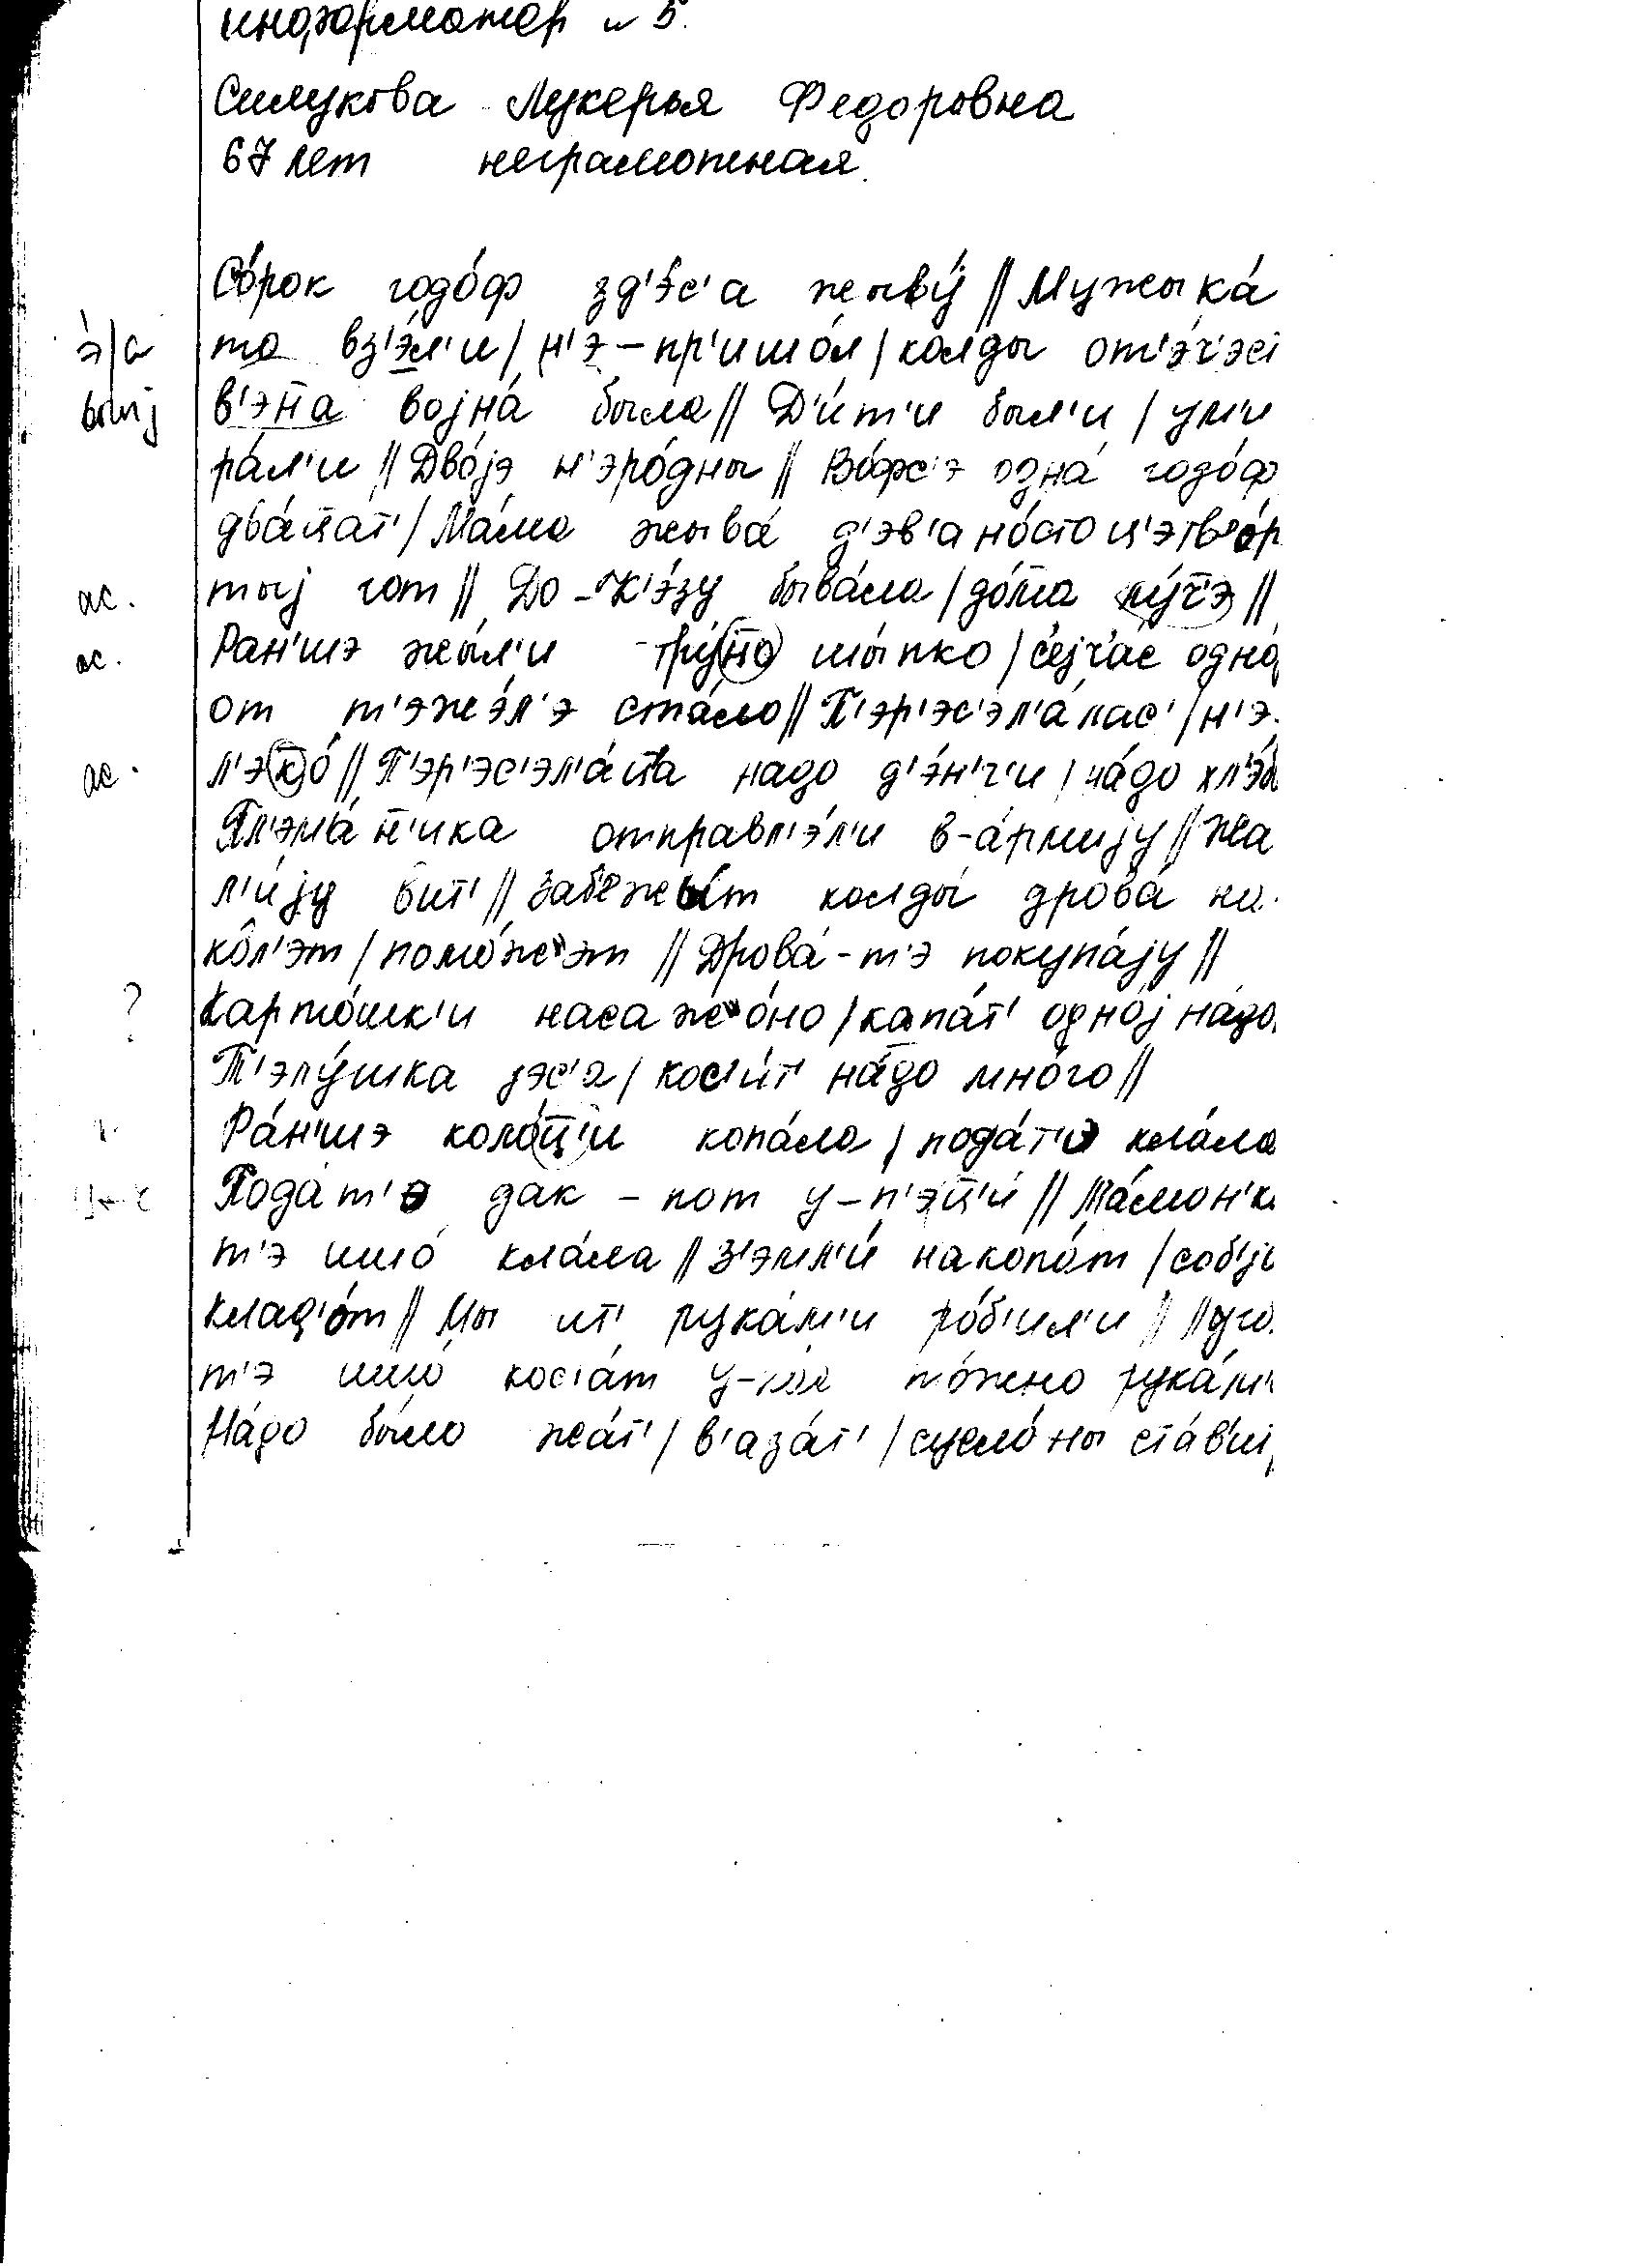 информатор № 5.
Силукова Лукерья Федоровна
67 лет неграмотная.
Со́рок годо́ф зд'э́с'а жыву́ // Мужыка́
э́/а то вз'э́л'и / н'э – пр'ишо́л / колды от'э́ч'эс
в'эн̄а војна́ была // Д'и́т'и был'и / ум'и
ра́л'и // Дво́јэ н'эро́дны // Во́фс'э одна́ годо́ф
два́ц̄ат' / Ма́ма жыва́ д'эв'ано́сто ц'этв'о́р
ас. тыј гот // До – К'э́зу быва́ла / до́ма лу́ч̄э //
ас. Ран'шэ жы́л'и тру́н̄о шы́пко / сејча́с одна́
от т'эжэ́л'э ста́ло // П'эр'эс'эл'а́лас' / н'э
ас. л'эк̄о́ // П'эр'эс'эл'а́ц̄а надо д'э́н'г'и / на́до хл'э́б
Пл'эма́н̄'ика отправл'э́л'и в–а́рмију // Жа
л'и́ју вит' // Забежы́т колды́ дрова́ на
ко̂л'эт / помо́ж'эт // Дрова́–т'э покупа́ју //
? Карто́шк'и насаж'о́но / капа́т' одно́ј на́до
Т'элу́шка јэс'а / кос'и́т' на́до мно́го //
Ра́н'шэ коло́ц̄'и копа́ла / пода́т'э кла́ла
Пода́т'э дак – пот у–п'эц̄'и́ // Ма́мон'к
т'э ишо́ кла́ла // З'эмл'и́ накопо́т / соб'јо
клад'о́т // Мы ит' рука́м'и ро́б'ил'и //
т'э ишо́ кос'а́т по́жно рука́м'и
На́до бы́ло жа́т' / в'аза́т' / сусло́ны ста́в'ит